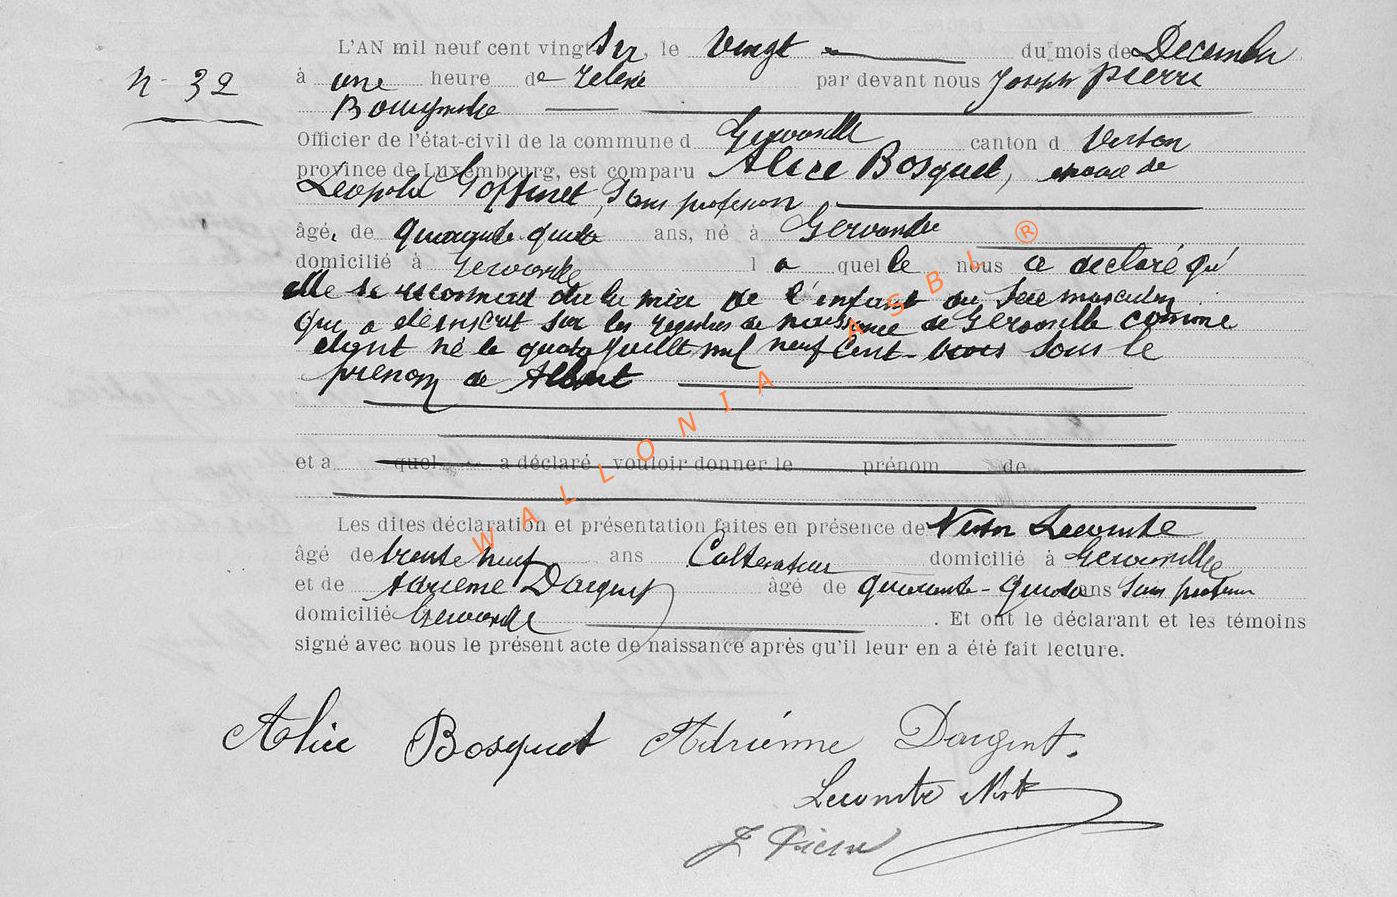 N° 32
L'AN mil neuf cent vingt Six, le Vingt du mois de Decembre
à une heure de relevé par devant nous Joseph Pierre
Bourgmestre
Officier de l'état-civil de la commune d Gerouville canton d Virton
province de Luxembourg, est comparu Alice Bosquet, epouse de
Leopold Goffinet, Sans profession
âgé, de quarante quatre ans, né à Gerouville
domicilié à Gerouville l a quel le nous a declaré qu'
elle se reconnait être la mère de l'enfant du sexe masculin
qui a été inscrit sur les registres de naissance de Gerouville comme
étant né le quatre Juillet mil neuf Cent-trois sous le
prenom de Albert
et a quel a déclaré vouloir donner le prénom de
Les dites déclaration et présentation faites en présence de Nestor Lecomte
âgé de trente neuf ans Cultivateur domicilié à Gerouville
et de Adrienne Dargent âgé de quarante-quatre ans Sans profession
domicilié Gerouville . Et ont le déclarant et les témoins
signé avec nous le présent acte de naissance après qu'il leur en a été fait lecture.
Alice Bosquet Adrienne Dargent.
Lecomte Nest
J Pierre
WALLONIA ASBL ®